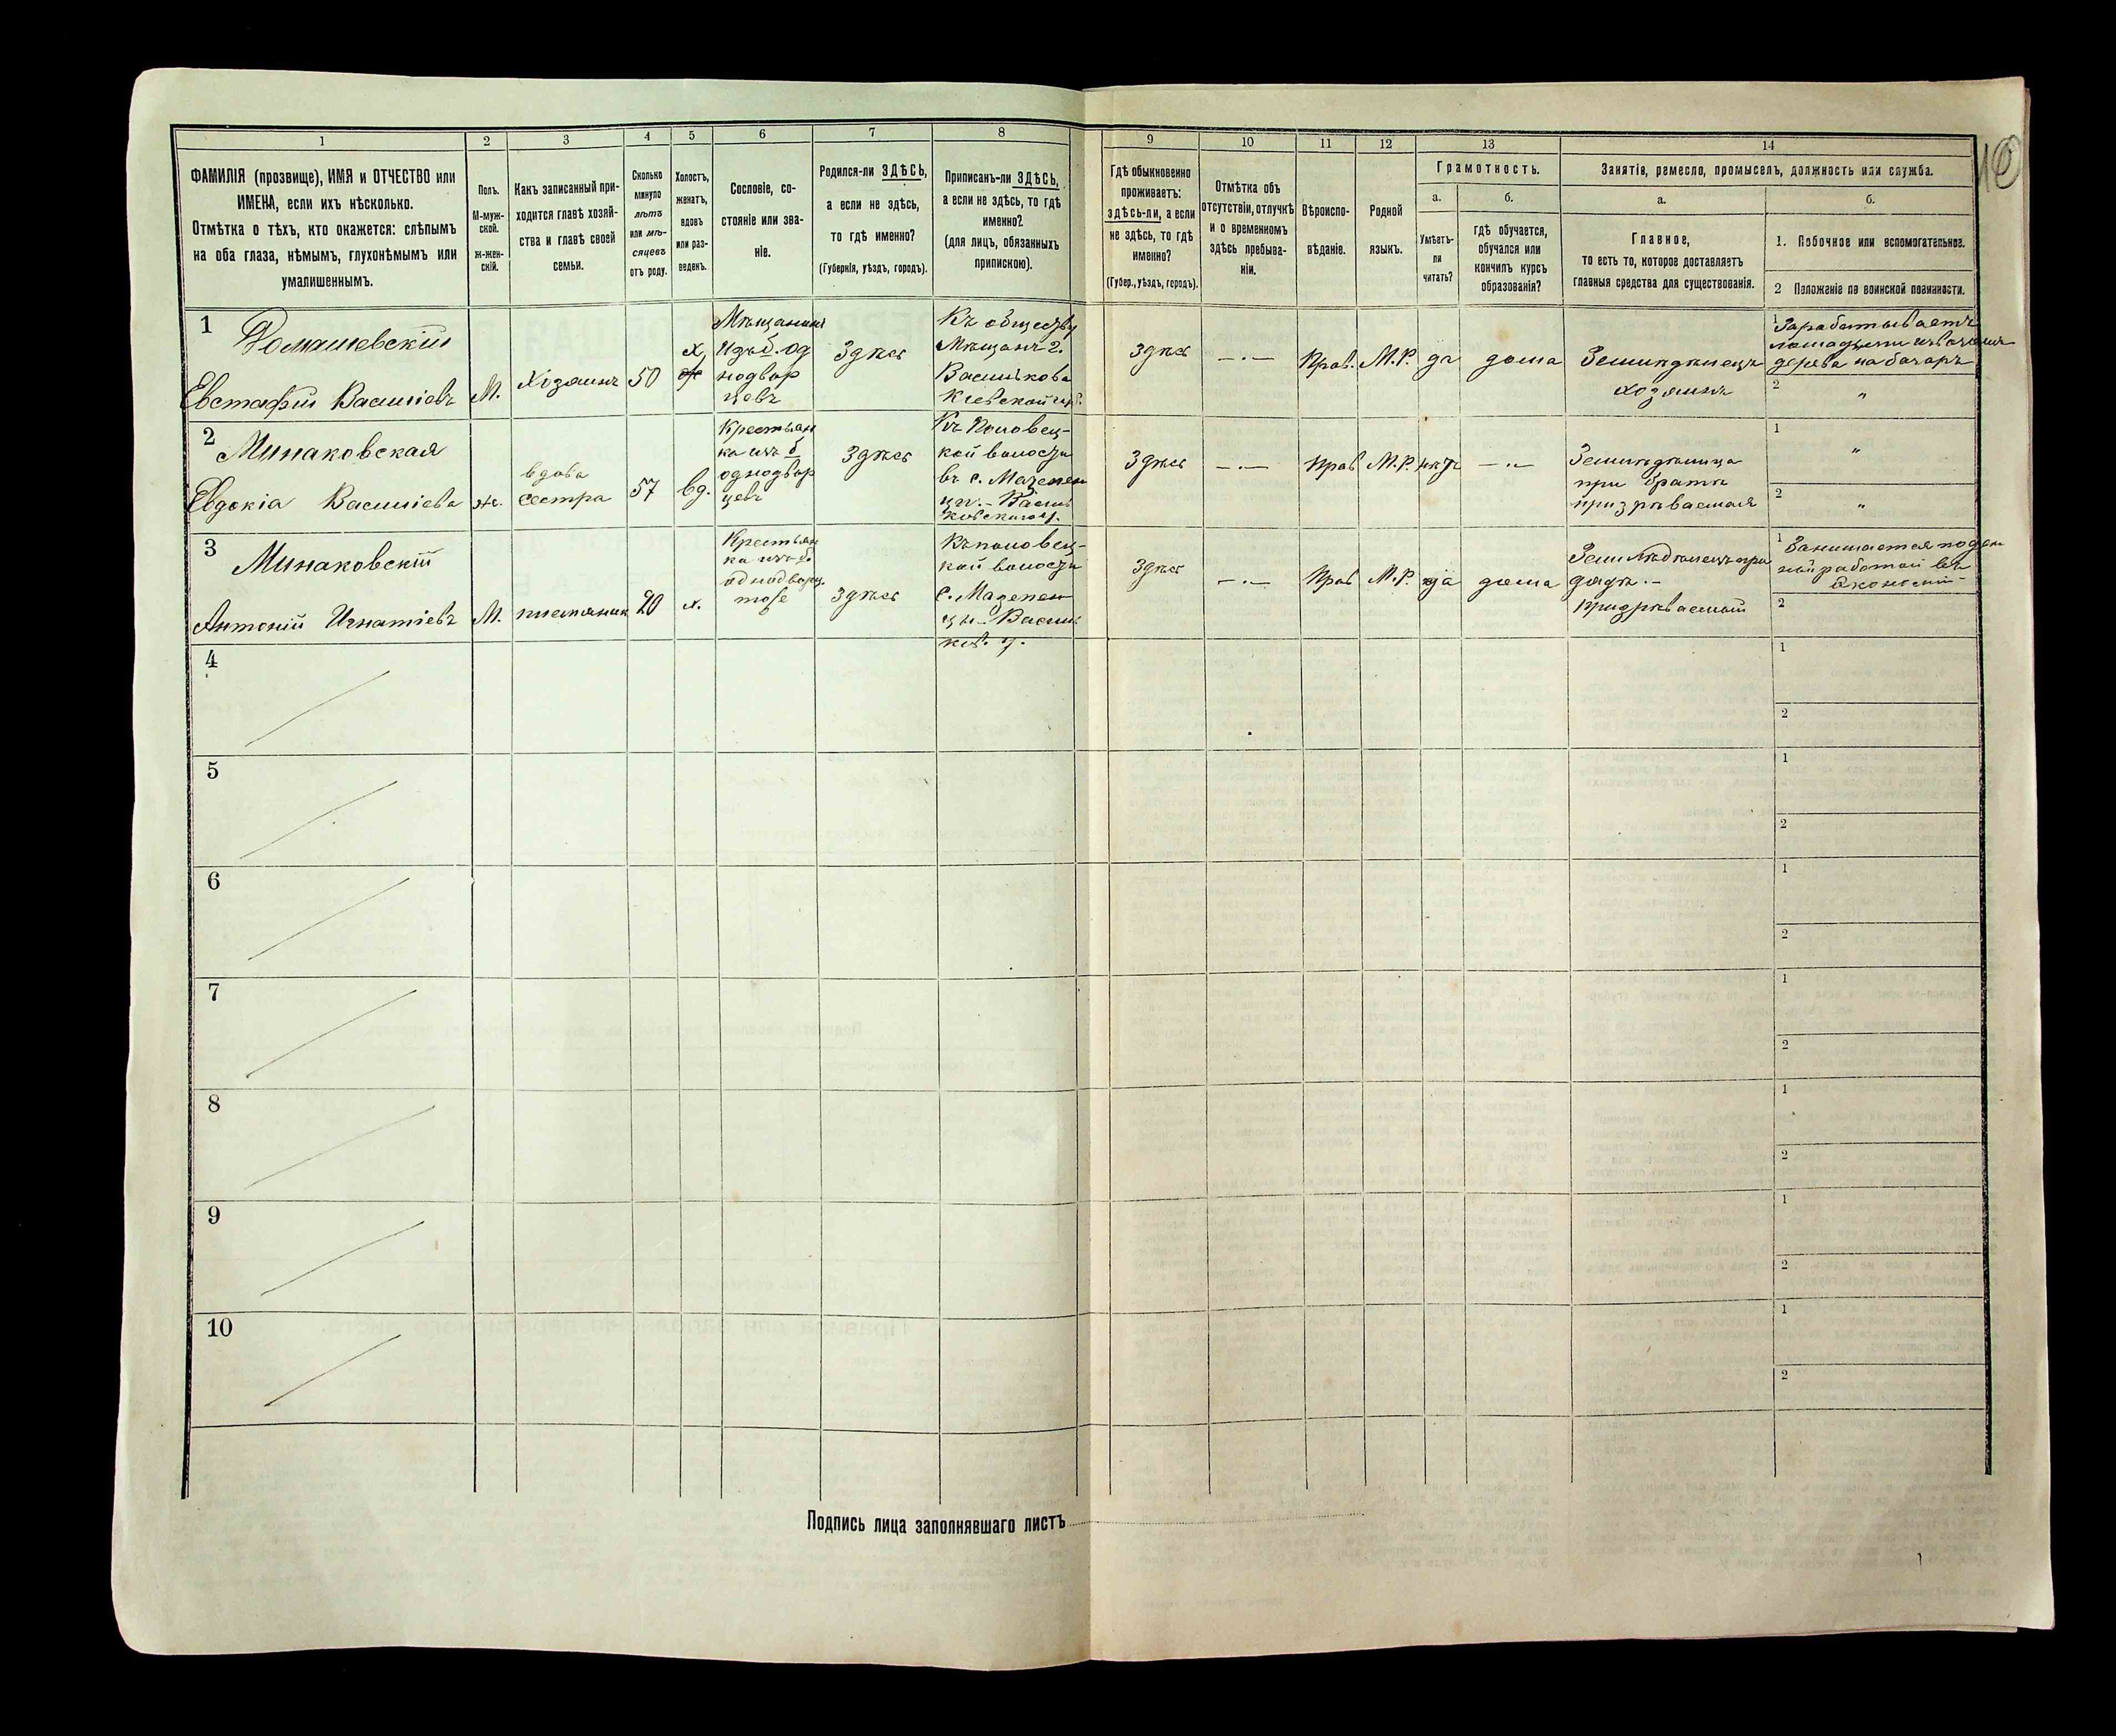 1 2 3 4 5 6 7 8 9 10 11 12 13 14
ФАМИЛІЯ (прозвище), ИМЯ и ОТЧЕСТВО или
ИМЕНА, если ихъ нѣсколько.
Отмѣтка о тѣхъ, кто окажется: слѣпымъ
на оба глаза, нѣмымъ, глухонѣмымъ или
умалишеннымъ.
Полъ.
М-муж-
ской.
ж-жен-
скій.
Какъ записанный при-
ходится главѣ хозяй-
ства и главѣ своей
семьи.
Сколько
минуло
лѣтъ
или мѣ-
сяцевъ
отъ роду.
Холостъ,
женатъ,
вдовъ
или раз-
веденъ.
Сословіе, со-
стояніе или зва-
ніе.
Родился-ли ЗДѢСЬ,
а если не здѣсь,
то гдѣ именно?
(Губернія, уѣздъ, городъ).
Приписанъ-ли ЗДѢСЬ,
а если не здѣсь, то гдѣ
именно?
(для лицъ, обязанныхъ
припискою).
Гдѣ обыкновенно
проживаетъ:
здѣсь-ли, а если
не здѣсь, то гдѣ
именно?
(Губер., уѣздъ, городъ).
Отмѣтка объ
отсутствіи, отлучкѣ
и о временномъ
здѣсь пребыва-
ніи.
Вѣроиспо-
вѣданіе.
Родной
языкъ.
Грамотность.
а.
Умѣетъ-
ли
читать?
б.
гдѣ обучается,
обучался или
кончилъ курсъ
образованія?
Занятія, ремесло, промыселъ, должность или служба.
а.
Главное,
то есть то, которое доставляетъ
главныя средства для существованія.
б.
1. Побочное или вспомогательное.
2 Положеніе по воинской повинности.
1
Евстафій Васильевъ
М.
Хозяинъ
50
х
Мѣщанинъ
изъ б. од
нодвор
цевъ
Здѣсь
Къ обществу
Мѣщанъ г.
Василькова
Кіевской губ.
Здѣсь
— . —
Прав.
М.Р.
да
дома
Земледѣлецъ
хозяинъ
1 Зарабатываетъ
2 "
2 Минаковская
Евдокія Васильева
ж.
вдова
сестра
57
вд.
Крестьян
ка изъ б
однодвор
цевъ
Здѣсь
Къ Половец-
кой волости
въ с. Мазепен
цы. - Василь
ковскаго у.
Здѣсь
— . —
Прав
М.Р.
нѣтъ
— . —
Земледѣлица
при братѣ
призрѣваемая
1 "
2 "
3 Минаковскій
Антоній Игнатіевъ
М.
племяник
20
х.
Крестьян
ка изъ б.
однодворц.
тоже
здѣсь
Къ половец-
кой волости
с. Мазепен
цы - Василь
ков. у.
Здѣсь
— . —
Прав
М.Р.
да
дома
Земледѣлецъ при
дядѣ. -
призрѣваемый
1 Занимается поден
ной работой въ
экономіи
2
4 1
2
5 1
2
6 1
2
7 1
2
8 1
2
9 1
2
10 1
2
Подпись лица заполнявшаго листъ